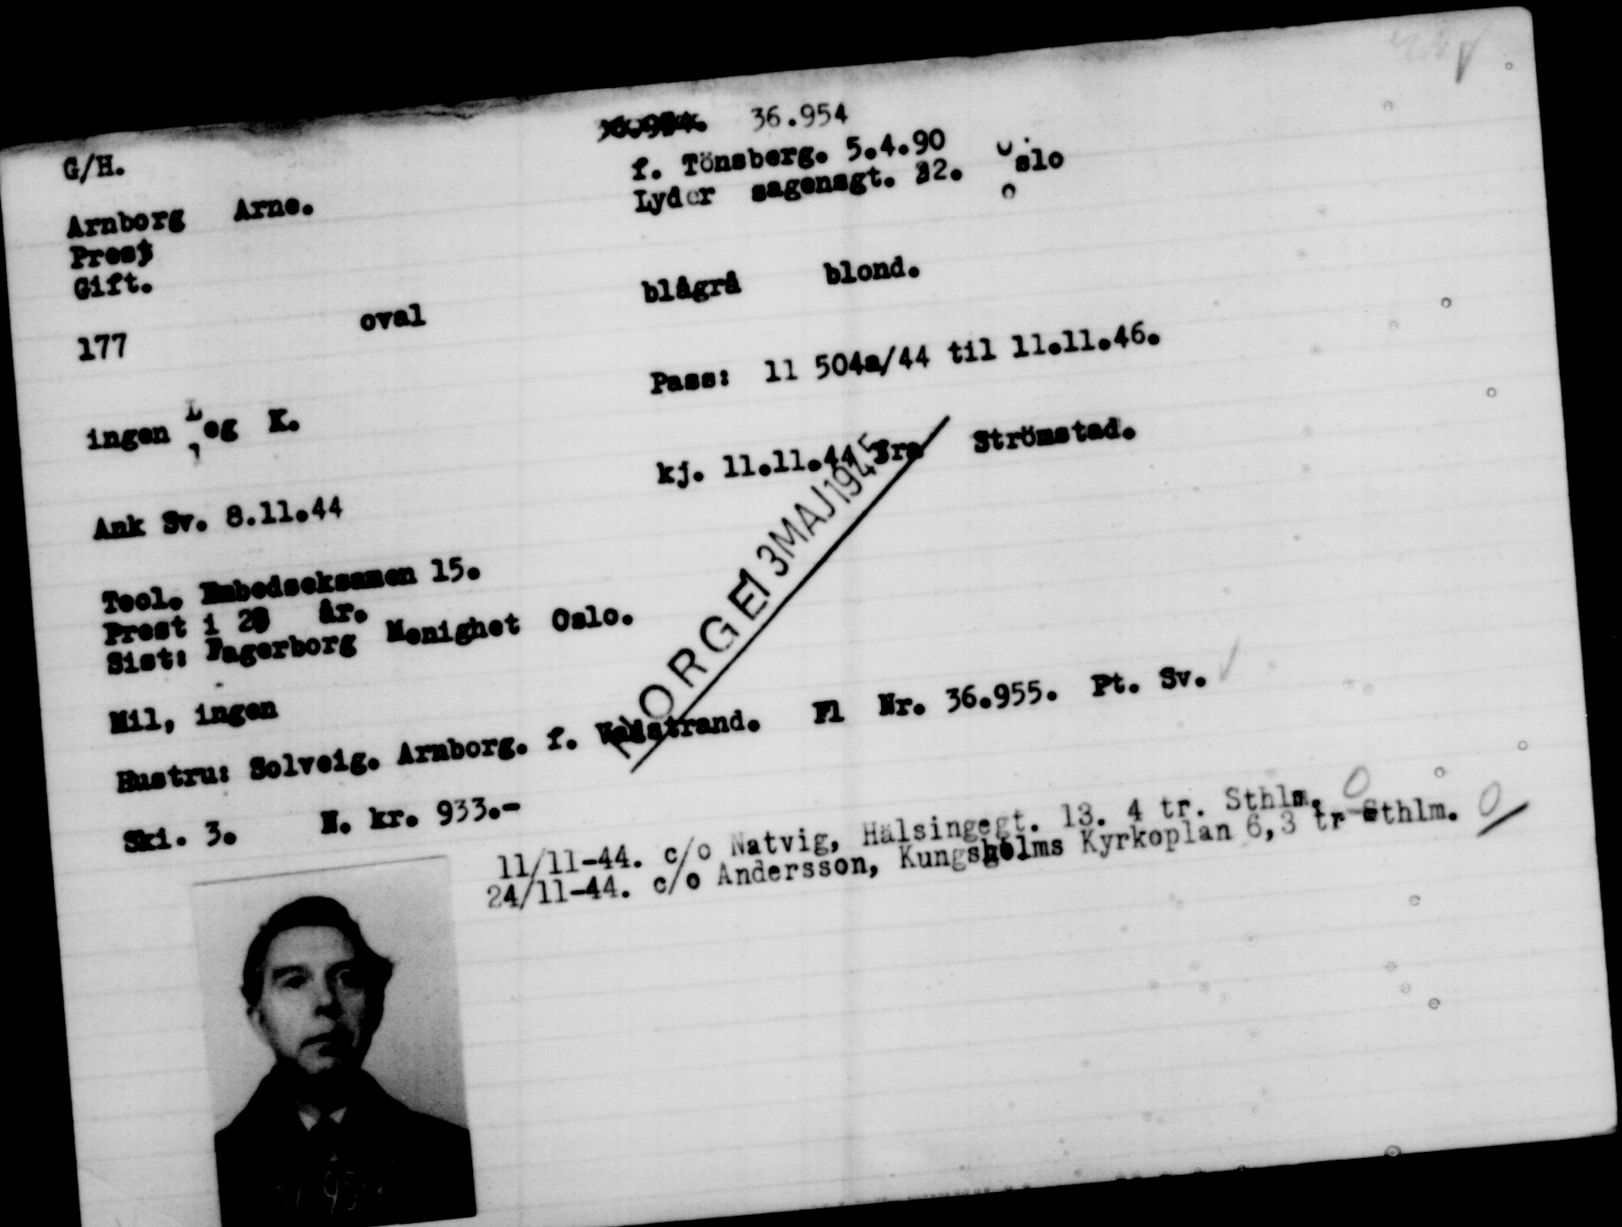 36.954
G/H.
f. Tönsberg. 5.4.90
Arnborg Arne.
Lyder sagensgt. 22. Oslo
Prest
Gift.
blågrå blond.
177 oval
Pass: 11 504a/44 til 11.11.46.
ingen Leg K.
kj. 11.11.44 fra Strömstad.
Ank Sv. 8.11.44
NORGE 13 MAJ 1945
Teol. Embedseksamen 15.
Prest i 28 år.
Sist: Fagerborg Menighet Oslo.
Mil, ingen
Hustru: Solveig. Arnborg. f. Fl Nr. 36.955. Pt. Sv.
Ski. 3. N. kr. 933.-
11/11-44. c/o Natvig, Hälsingegt. 13. 4 tr. Sthlm.
24/11-44. c/o Andersson, Kungsholms Kyrkoplan 6,3 tr Sthlm.